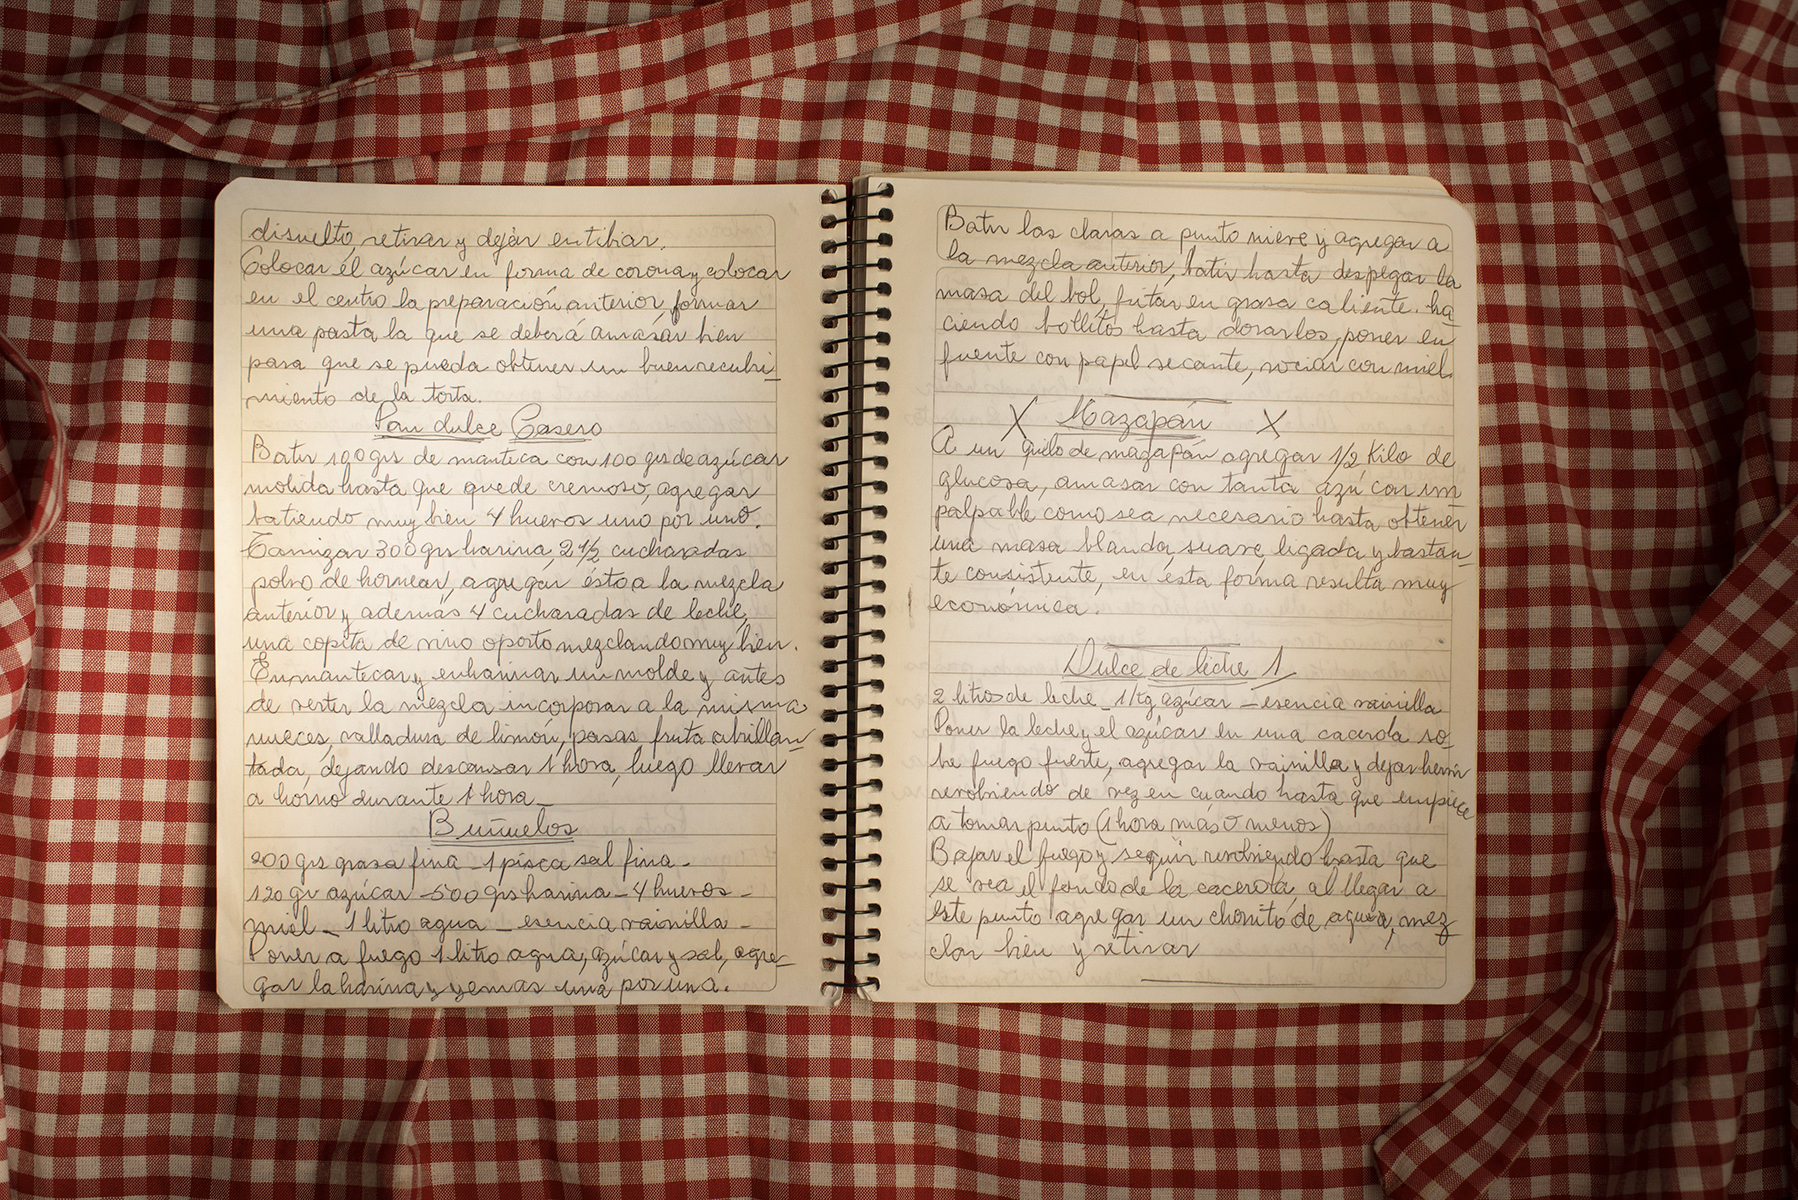 disuelto, retirar y dejar entibiar.
Colocar el azúcar en forma de corona y colocar
en el centro la preparación anterior, formar
una pasta la que se deberá amasar bien
para que se pueda obtener un buen recubri-
miento de la torta.
Pan dulce Casero
Batir 100 grs de manteca con 100 grs de azúcar
molida hasta que quede cremoso, agregar
batiendo muy bien 4 huevos uno por uno.
Tamizar 300 grs harina, 2 1/2 cucharadas
polvo de hornear, agregar ésto a la mezcla
anterior y además 4 cucharadas de leche,
una copita de vino oporto mezclando muy bien.
Enmantecar y enharinar un molde y antes
de verter la mezcla incorporar a la misma
nueces, ralladura de limón, pasas fruta abrillan-
tada, dejando descansar 1 hora, luego llevar
a horno durante 1 hora_
Buñuelos
200 grs grasa fina - 1 pisca sal fina -
120 gr azúcar - 500 grs harina - 4 huevos -
miel - 1 litro agua - esencia vainilla -
Poner a fuego 1 litro agua, azúcar y sal, agre-
gar la harina y yemas una por una.
Batir las claras a punto nieve y agregar a
la mezcla anterior, batir hasta despegar la
masa del bol, fritar en grasa caliente. ha-
ciendo bollitos hasta dorarlos, poner en
fuente con papel secante, rociar con miel.
X Mazapán X
A un quilo de mazapán agregar 1/2 Kilo de
glucosa, amasar con tanta azúcar im
palpable como sea necesario hasta obtener
una masa blanda, suave, ligada y bastan-
te consistente, en ésta forma resulta muy
económica.
Dulce de leche 1
2 litros de leche - 1 Kg azúcar - esencia vainilla
Poner la leche y el azúcar en una cacerola so-
bre fuego fuerte, agregar la vainilla y dejar hervir
revolviendo de vez en cuando hasta que empiece
a tomar punto (1 hora más o menos)
Bajar el fuego y seguir revolviendo hasta que
se vea el fondo de la cacerola, al llegar a
éste punto agregar un chorrito de agua, mez
clar bien y retirar